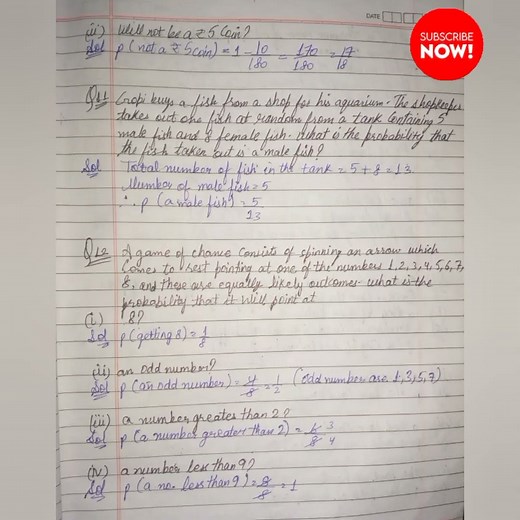 DATE
SUBSCRIBE
NOW!
iii) Will not be a ₹5 Coin?
Sol P(not a ₹5 coin) = 1 - 10/180 = 170/180 = 17/18
Q11 Gopi buys a fish from a shop for his aquarium. The shopkeeper
takes out one fish at random from a tank containing 5
male fish and 8 female fish. What is the probability that
the fish taken out is a male fish?
Sol Total number of fish in the tank = 5 + 8 = 13
Number of male fish = 5
∴ P (a male fish) = 5/13
Q12 A game of chance consists of spinning an arrow which
comes to rest pointing at one of the numbers 1,2,3,4,5,6,7,
8, and these are equally likely outcomes. what is the
probability that it will point at
(i) 8?
Sol P(getting 8) = 1/8
(ii) an odd number?
Sol P (an odd number) = 4/8 = 1/2 (odd number are 1,3,5,7)
(iii) a number greater than 2?
Sol P (a number greater than 2) = 6/8 3/4
(iv) a number less than 9?
Sol P (a no. less than 9) = 8/8 = 1